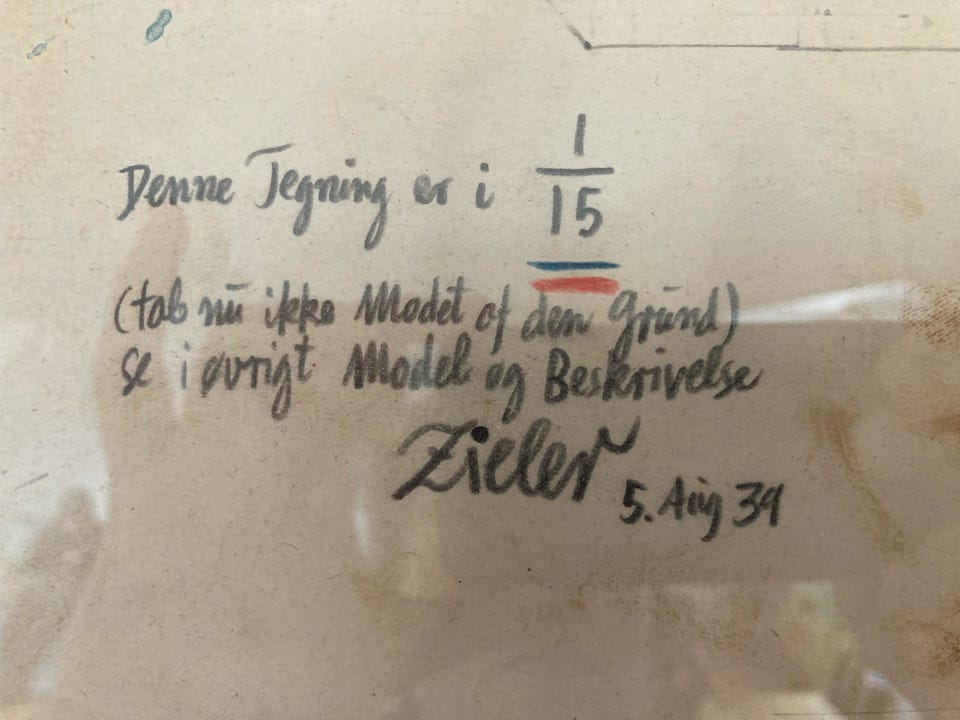 Denne Tegning er i 1/15
(tab nu ikke Modet af den Grund)
se i øvrigt Model og Beskrivelse
Zieler
5. Aug 39